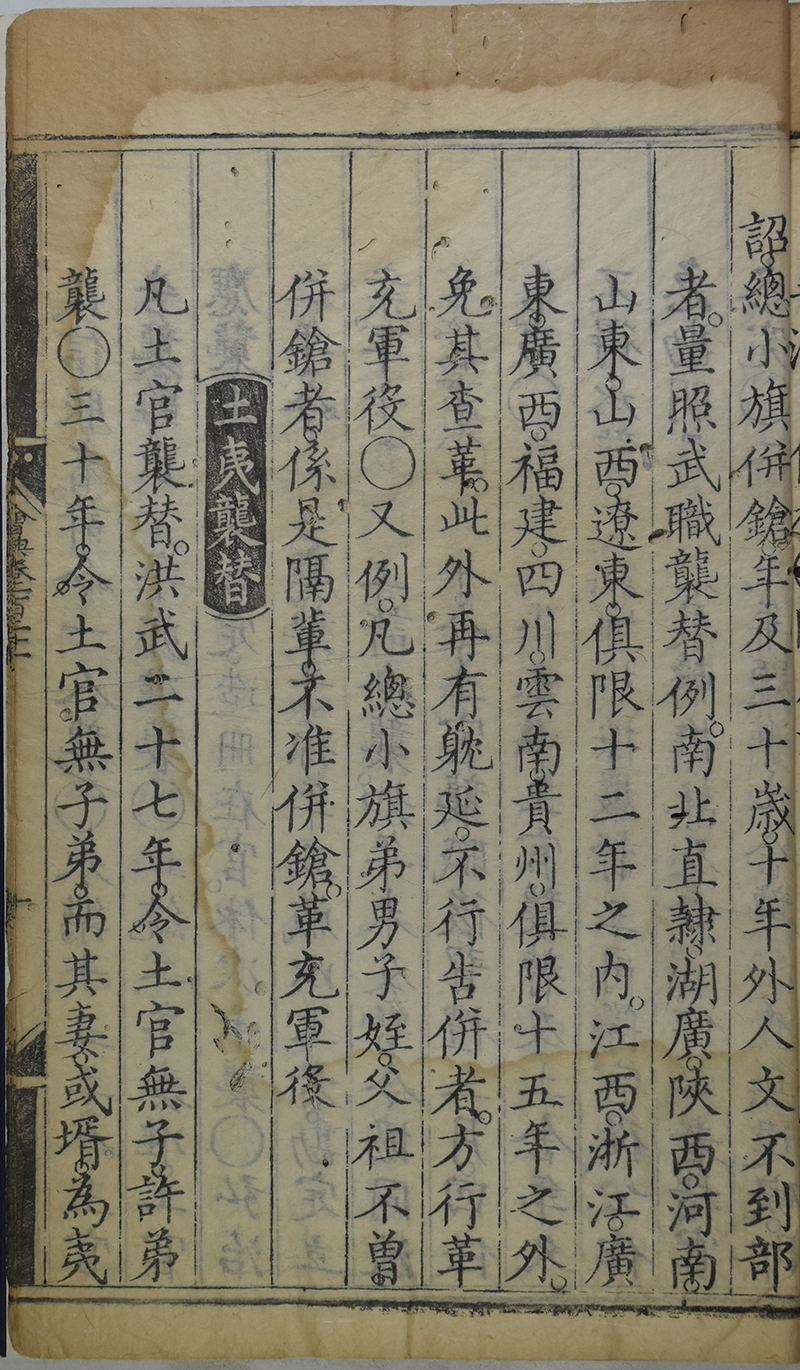 詔。總小旗併鎗。年及三十歲。十年外人文不到部
者。量照武職襲替例。南北直隷、湖廣。陝西。河南。
山東。山西。遼東。俱限十二年之內。江西。浙江。廣
東。廣西。福建。四川。雲南。貴州。俱限十五年之外。
免其查革。此外再有躭延。不行告併者。方行革
充軍役〇又例。凡總小旗弟男子姪。父祖不曾。
併鎗者。係是隔輩。不准併鎗。革充軍役
土夷襲替
凡土官襲替。洪武二十七年。令土官無子。許弟
襲〇三十年。令土官。無子弟。而其妻。或壻。為夷
會典卷一百二十